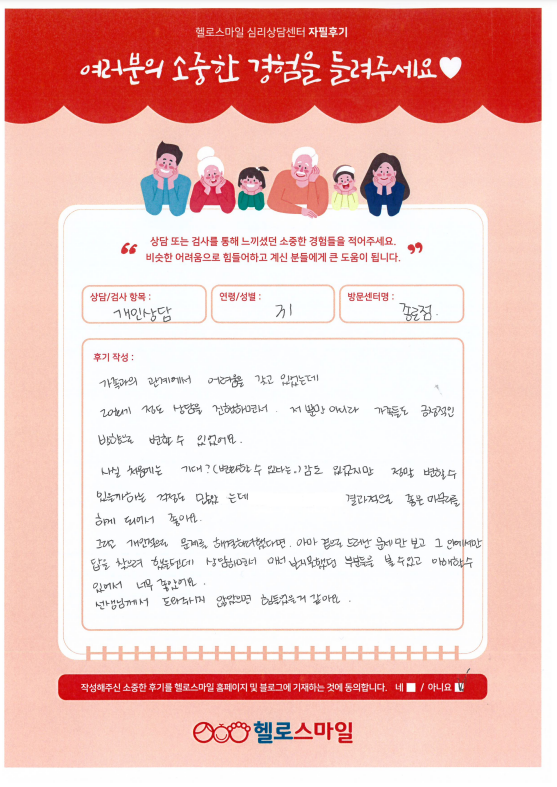 헬로스마일 심리상담센터 자필후기
여러분의 소중한 경험을 들려주세요
상담 또는 검사를 통해 느끼셨던 소중한 경험들을 적어주세요.
비슷한 어려움으로 힘들어하고 계신 분들에게 큰 도움이 됩니다.
상담/검사 항목 : 개인상담
연령/성별 :
방문센터명 : 종로점.
후기 작성 :
가족과의 관계에서 어려움을 갖고 있었는데
20회기 정도 상담을 진행하면서. 저 뿐만 아니라 가족들도 긍정적인
방향으로 변할 수 있었어요.
사실 처음에는 기대?(변화할 수 있다는.)감도 있었지만 정말 변할 수
있을까하는 걱정도 많았 는데 결과적으로 좋은 마무리를
하게 되어서 좋아요.
그리고 개인적으로 문제를 해결하려했다면. 아마 겉으로 드러난 문제만 보고 그 안에서만
답을 찾으려 했을텐데 상담하면서 미처 보지못했던 부분들을 볼 수 있고 이해할 수
있어서 너무 좋았어요.
선생님께서 도와주시지 않았으면 힘들었을거 같아요.
작성해주신 소중한 후기를 헬로스마일 홈페이지 및 블로그에 기재하는 것에 동의합니다. 네 / 아니요 V
헬로스마일